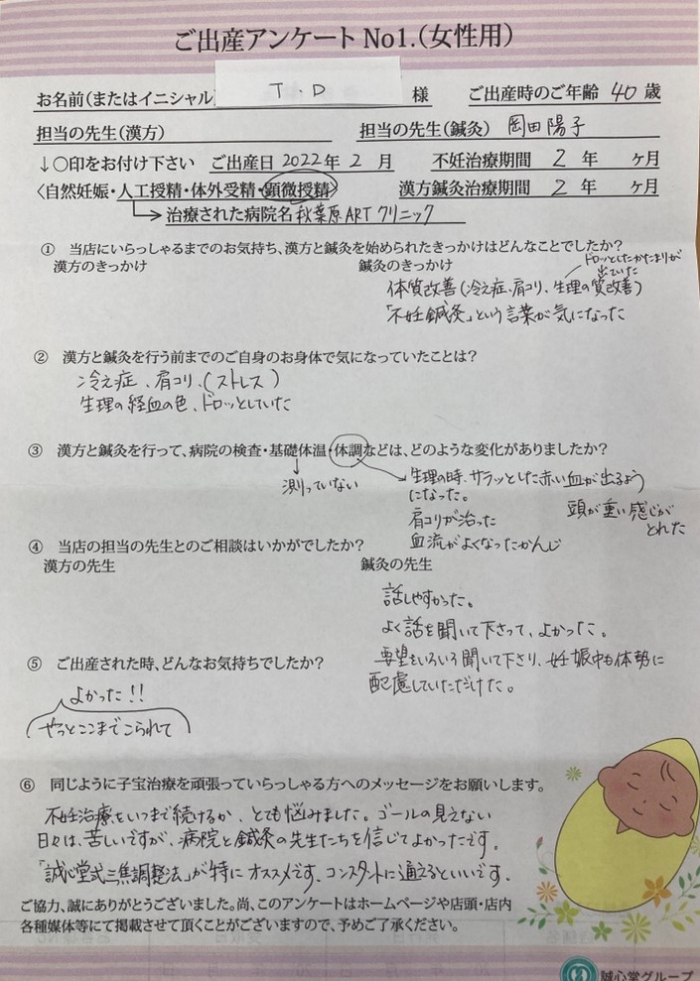 ご出産アンケート No1.(女性用)
お名前(またはイニシャル) T.D 様 ご出産時のご年齢 40 歳
担当の先生(漢方) 担当の先生(鍼灸) 岡田陽子
↓○印をお付け下さい ご出産日 2022年 2 月 不妊治療期間 2 年 ヶ月
〈自然妊娠・人工授精・体外受精・顕微授精〉 漢方鍼灸治療期間 2 年 ヶ月
→治療された病院名 秋葉原ARTクリニック
① 当店にいらっしゃるまでのお気持ち、漢方と鍼灸を始められたきっかけはどんなことでしたか?
漢方のきっかけ 鍼灸のきっかけ
ドロッとしたかたまりが
出ていた
体質改善(冷え症、肩コリ、生理の質改善)
「不妊鍼灸」という言葉が気になった
② 漢方と鍼灸を行う前までのご自身のお身体で気になっていたことは?
冷え症、肩コリ、(ストレス)
生理の経血の色、ドロッとしていた
③ 漢方と鍼灸を行って、病院の検査・基礎体温・体調などは、どのような変化がありましたか?
測っていない
生理の時、サラッとした赤い血が出るよう
になった。
肩コリが治った
血流がよくなったかんじ
頭が重い感じが
とれた
④ 当店の担当の先生とのご相談はいかがでしたか?
漢方の先生 鍼灸の先生
話しやすかった。
よく話を聞いて下さって、よかった。
要望をいろいろ聞いて下さり、妊娠中も体勢に
配慮していただけた。
⑤ ご出産された時、どんなお気持ちでしたか?
よかった!!
やっとここまでこられて
⑥ 同じように子宝治療を頑張っていらっしゃる方へのメッセージをお願いします。
不妊治療をいつまで続けるか、とても悩みました。ゴールの見えない
日々は、苦しいですが、病院と鍼灸の先生たちを信じてよかったです。
「誠心堂式三焦調整法」が特にオススメです、コンスタントに通えるといいです。
ご協力、誠にありがとうございました。尚、このアンケートはホームページや店頭・店内
各種媒体等にて掲載させて頂くことがございますので、予めご了承ください。
誠心堂グループ